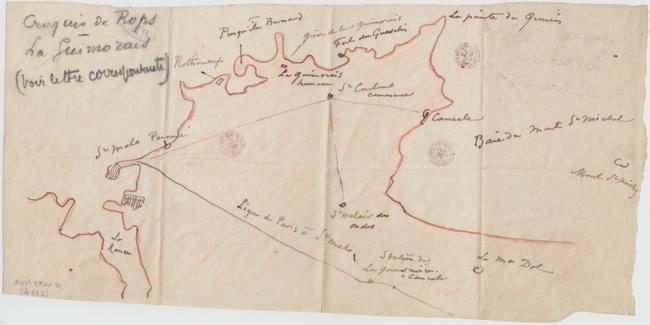 Croquis de Rops
—
La Guimorais
(voir lettre correspondante)
Presqu'ile Besnard
grève de la Guimorais
Fort du Guesclin
La pointe du Grouin
Rotheneuf
La guimorais
hameau
St Coulomb
commune
Cancale
Baie du Mont St Michel
Mont St Michel
St Malo
Paramé
La
Rance
St Melair des
ondes
Ligne de Paris à St Malo
Station de
La Gouesnière
Cancale
Le Mt Dol